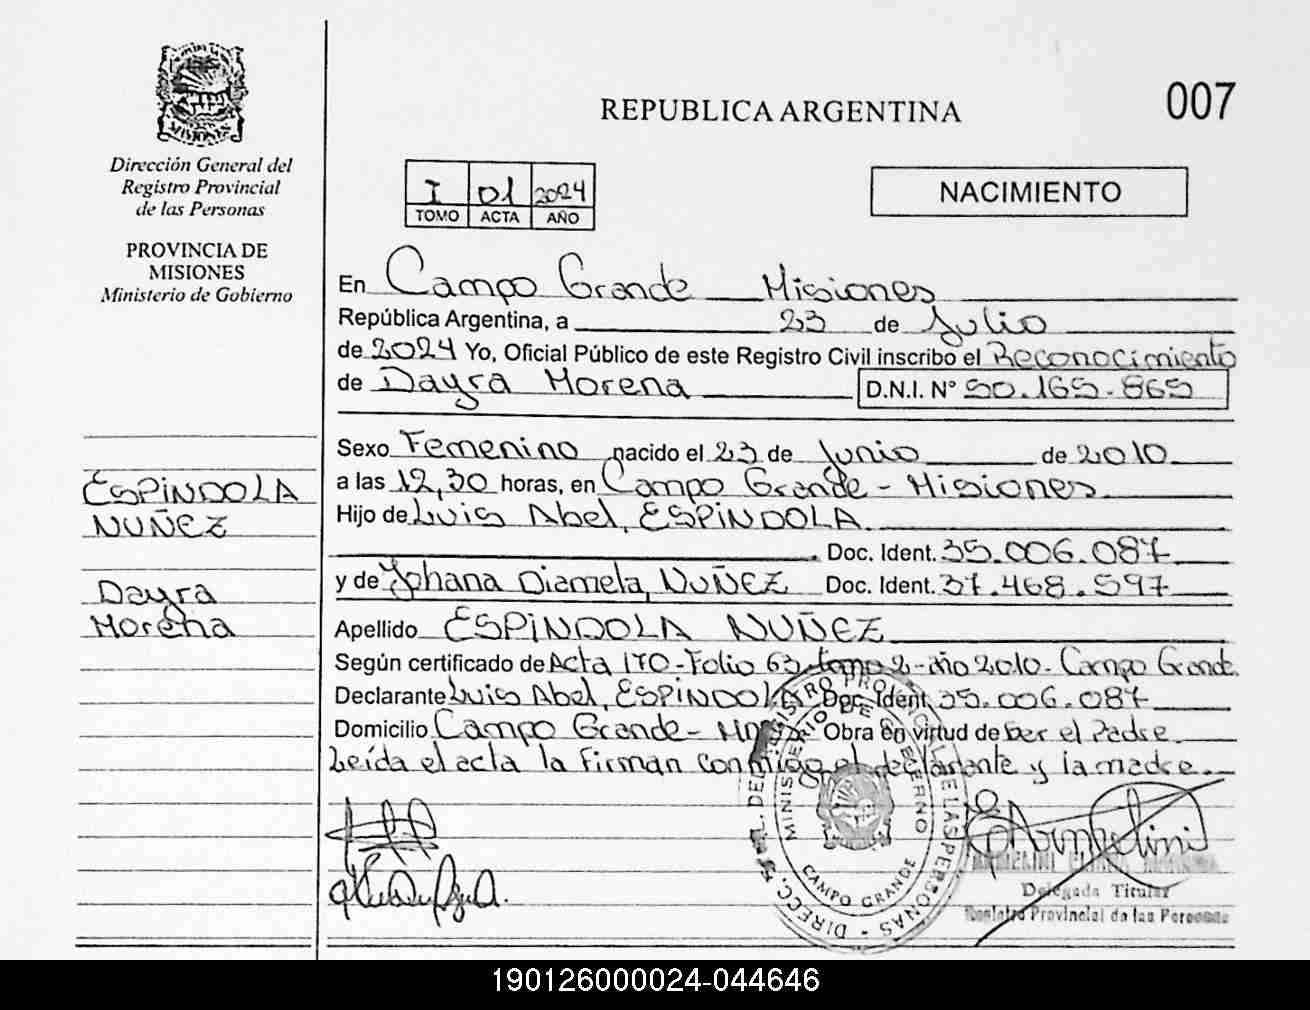 Dirección General del
Registro Provincial
de las Personas
PROVINCIA DE
MISIONES
Ministerio de Gobierno
REPUBLICA ARGENTINA
007
I 01 2024
TOMO ACTA AÑO
NACIMIENTO
En Campo Grande Misiones
República Argentina, a 23 de Julio
de 2024 Yo, Oficial Público de este Registro Civil inscribo el Reconocimiento
de Dayra Morena D.N.I. N° 50.165.865
Sexo Femenino nacido el 23 de Junio de 2010
a las 12,30 horas, en Campo Grande - Misiones
Hijo de Luis Abel, ESPINDOLA
Doc. Ident. 35.006.087
y de Yohana Diamela, NUÑEZ Doc. Ident. 37.468.597
Apellido ESPINDOLA NUÑEZ
Según certificado de Acta 170-Folio 63-tomo 2-año 2010- Campo Grande
Declarante Luis Abel, ESPINDOLA Doc. Ident. 35.006.087
Domicilio Campo Grande - Obra en virtud de Ser el Padre
Leída el acta la Firman conmigo el declarante y la madre.
ESPINDOLA
NUÑEZ
Dayra
Morena
DIRECC. GRAL. DEL REGISTRO PROVINCIAL DE LAS PERSONAS
MINISTERIO DE GOBIERNO
CAMPO GRANDE
Delegada Titular
Registro Provincial de las Personas
190126000024-044646